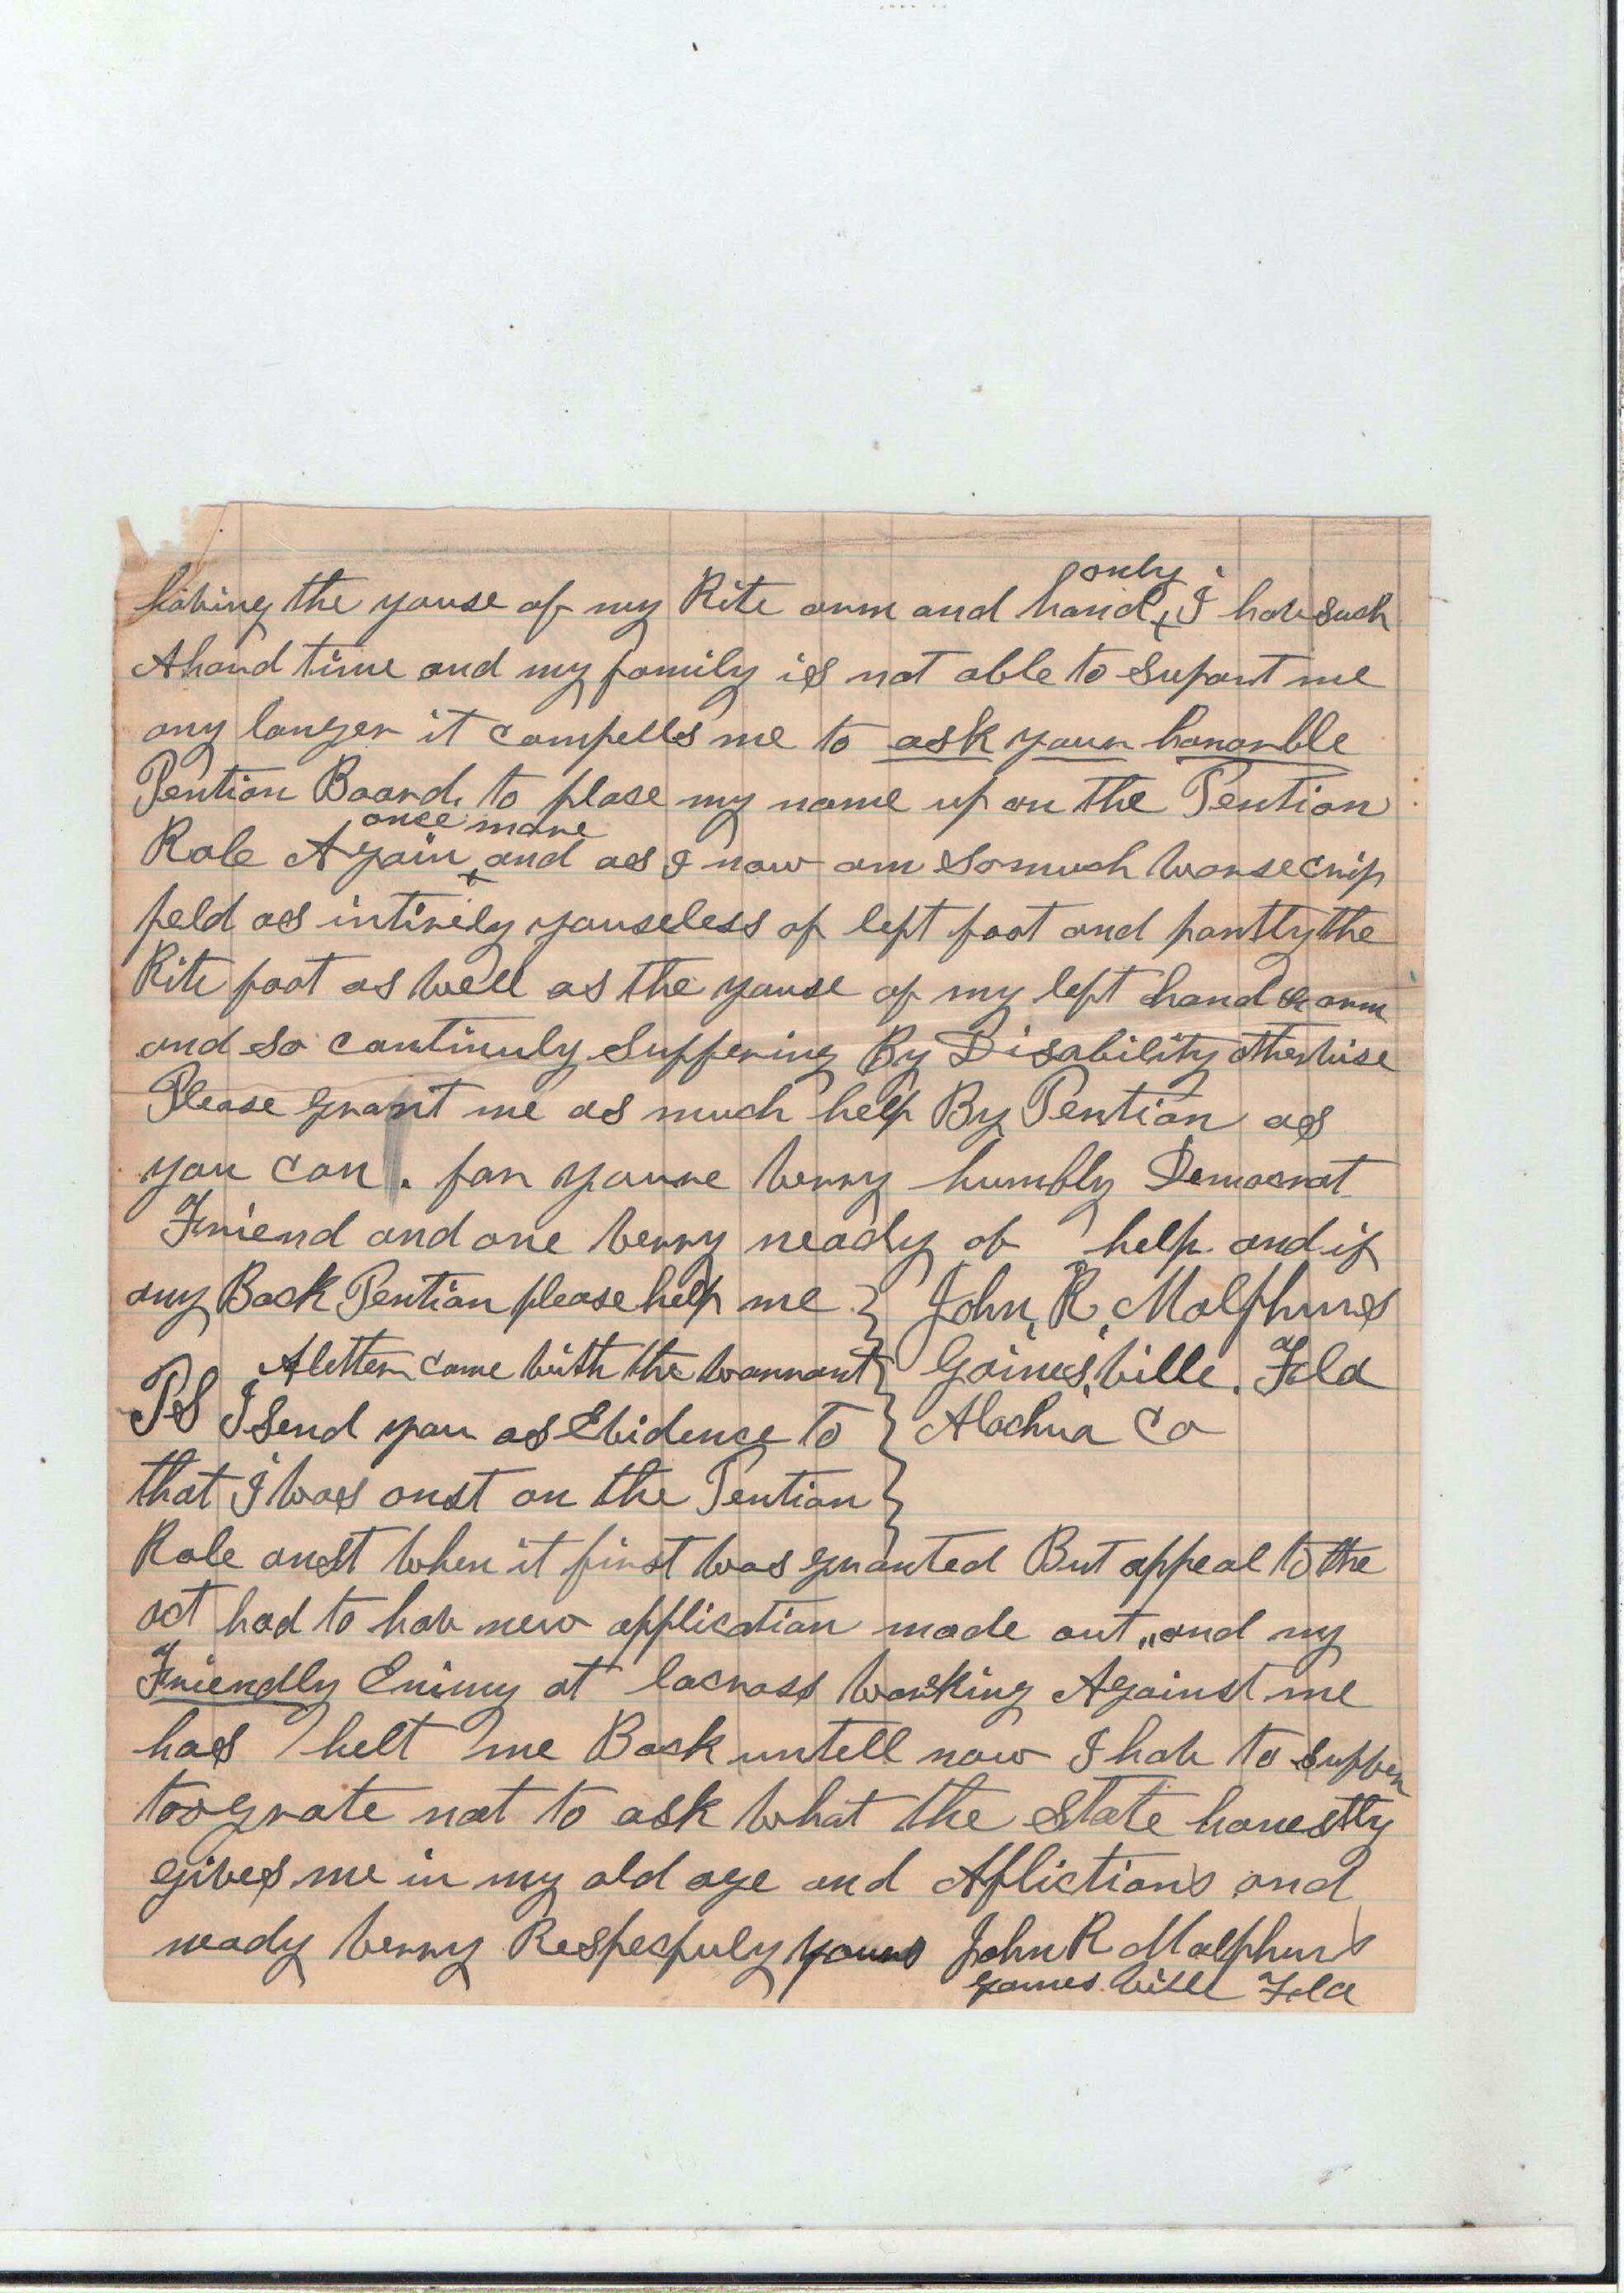 only
having the youse of my Rite arm and hand, I hav such
A hard time and my family is not able to suport me
any longer it compells me to ask your honorble
Pention Board, to plase my name up on the Pention
once more
Role Again and as I now am so much worse crip
peld as intirely youseless of left foot and partly the
Rite foot as well as the youse of my left hand & arm
and so continuly suffering By Disability otherwise
Please grant me as much help By Pention as
you can. for youre verry humbly Democrat
Friend and one verry neady of help. and if
any Back Pention please help me } John, R, Malphurs
A letter came with the warrant } Gaines,ville. Fla
PS I send you as Evidence to } Alachua Co
that I was onst on the Pention }
Role onst when it first was granted But appeal to the
act had to hav new application made out ,, and my
Friendly Enimy at lacross working Against me
has helt me Back untell now I hav to suffer
too grate not to ask what the State honestly
gives me in my old age and Aflictions and
neady verry Respecfuly yours John R Malphurs
Gainesville Fla